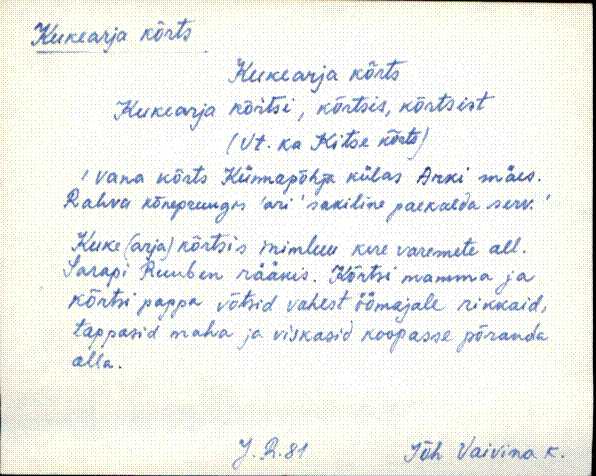 Kukearja kõrts
Kukearja kõrts
Kukearja kõrtsi, kõrtsis, kõrtsist
(Vt. ka Kitse kõrts)
'Vana kõrts Künnapõhja külas Arki mäes.
Rahva kõnepruugis 'ari' sakiline paekalda serv.'
Kuke(arja)kõrtsis inimluu kere varemete all.
Sarapi Ruuben rääkis. Kõrtsi mamma ja
kõrtsi pappa võtsid vahest öömajale rikkaid,
tappasid maha ja viskasid koopasse põranda
alla.
J. R. 81 Jõh Vaivina k.